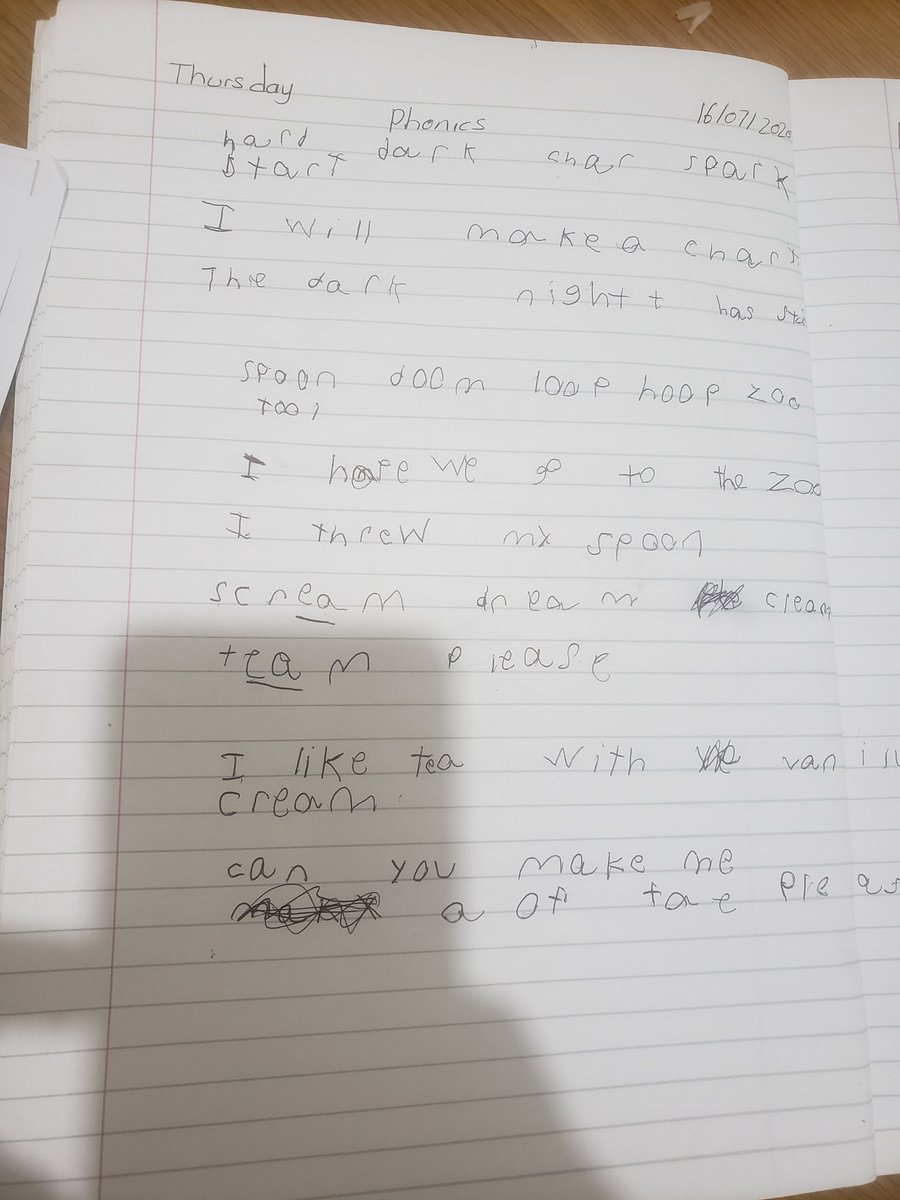 Thursday
Phonics 16/07/2020
hard dark char spark
start
I will make a chart
The dark nightt has sta
spoon doom loop hoop zoo
tool
I hope we go to the zoo
I threw my spoon
scream dream cream
team please
I like tea with vanill
cream.
can you make me
a of tae pleas